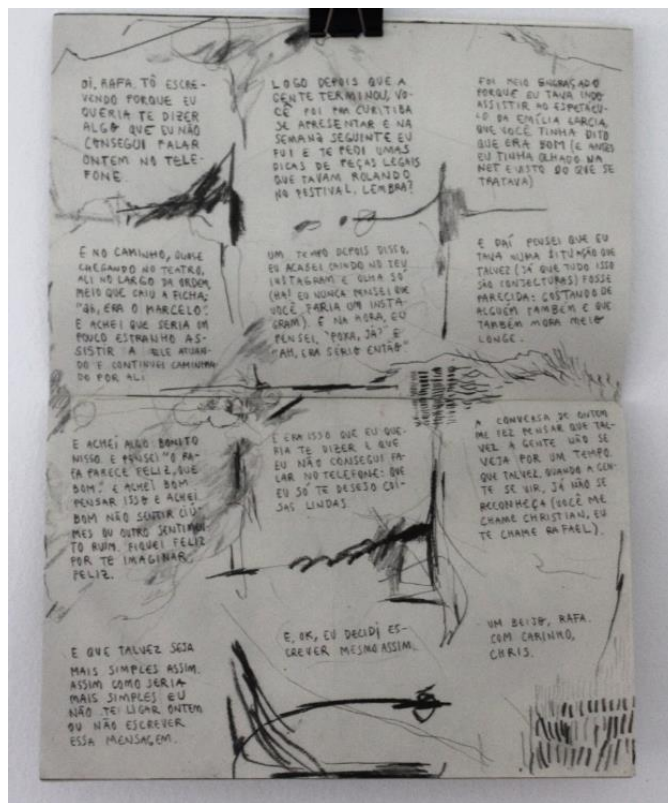 OI, RAFA. TÔ ESCRE-
VENDO PORQUE EU
QUERIA TE DIZER
ALGO QUE EU NÃO
CONSEGUI FALAR
ONTEM NO TELE-
FONE.
LOGO DEPOIS QUE A
GENTE TERMINOU, VO-
CÊ FOI PRA CURITIBA
SE APRESENTAR E NA
SEMANA SEGUINTE EU
FUI E TE PEDI UMAS
DICAS DE PEÇAS LEGAIS
QUE TAVAM ROLANDO
NO FESTIVAL. LEMBRA?
FOI MEIO ENGRAÇADO
PORQUE EU TAVA INDO
ASSISTIR AO ESPETÁCU-
LO DA EMÍLIA GARCIA
QUE VOCÊ TINHA DITO
QUE ERA BOM (E ANTES
EU TINHA OLHADO NA
NET E VISTO DO QUE SE
TRATAVA)
E NO CAMINHO, QUASE
CHEGANDO NO TEATRO,
ALI NO LARGO DA ORDEM,
MEIO QUE CAIU A FICHA:
"AH, ERA O MARCELO".
E ACHEI QUE SERIA UM
POUCO ESTRANHO AS-
SISTIR A ELE ATUAN-
DO E CONTINUEI CAMINHAN-
DO POR ALI.
UM TEMPO DEPOIS DISSO,
EU ACABEI CAINDO NO TEU
INSTAGRAM E OLHA SÓ
(HA! EU NUNCA PENSEI QUE
VOCÊ FARIA UM INSTA-
GRAM). E NA HORA, EU
PENSEI, "POXA, JÁ?" E
"AH, ERA SÉRIO ENTÃO"
E DAÍ PENSEI QUE EU
TAVA NUMA SITUAÇÃO QUE
TALVEZ (JÁ QUE TUDO ISSO
SÃO CONJECTURAS) FOSSE
PARECIDA: GOSTANDO DE
ALGUÉM TAMBÉM E QUE
TAMBÉM MORA MEIO
LONGE.
E ACHEI ALGO BONITO
NISSO. E PENSEI "O RA-
FA PARECE FELIZ, QUE
BOM." E ACHEI BOM
PENSAR ISSO E ACHEI
BOM NÃO SENTIR CIÚ-
MES OU OUTRO SENTIMEN-
TO RUIM. FIQUEI FELIZ
POR TE IMAGINAR
FELIZ.
E ERA ISSO QUE EU QUE-
RIA TE DIZER E QUE
EU NÃO CONSEGUI FA-
LAR NO TELEFONE: QUE
EU SÓ TE DESEJO COI-
SAS LINDAS.
A CONVERSA DE ONTEM
ME FEZ PENSAR QUE TAL-
VEZ A GENTE NÃO SE
VEJA POR UM TEMPO.
QUE TALVEZ, QUANDO A GEN-
TE SE VIR, JÁ NÃO SE
RECONHEÇA (VOCÊ ME
CHAME CHRISTIAN, EU
TE CHAME RAFAEL).
E QUE TALVEZ SEJA
MAIS SIMPLES ASSIM.
ASSIM COMO SERIA
MAIS SIMPLES EU
NÃO TE LIGAR ONTEM
OU NÃO ESCREVER
ESSA MENSAGEM.
E, OK, EU DECIDI ES-
CREVER MESMO ASSIM.
UM BEIJO, RAFA.
COM CARINHO,
CHRIS.